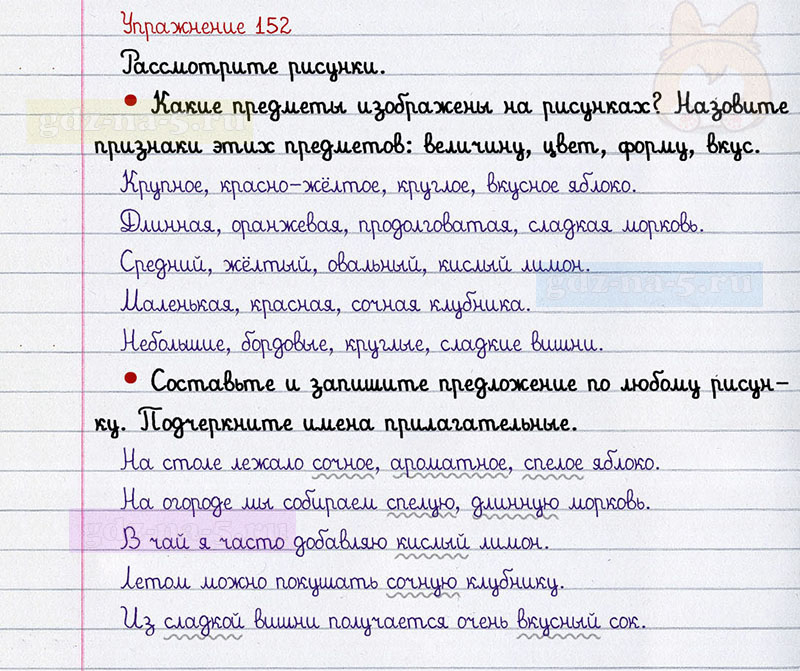 Упражнение 152
Рассмотрите рисунки.
• Какие предметы изображены на рисунках? Назовите
признаки этих предметов: величину, цвет, форму, вкус.
Крупное, красно-жёлтое, круглое, вкусное яблоко.
Длинная, оранжевая, продолговатая, сладкая морковь.
Средний, жёлтый, овальный, кислый лимон.
Маленькая, красная, сочная клубника.
Небольшие, бордовые, круглые, сладкие вишни.
• Составьте и запишите предложение по любому рисун-
ку. Подчеркните имена прилагательные.
На столе лежало сочное, ароматное, спелое яблоко.
На огороде мы собираем спелую, длинную морковь.
В чай я часто добавляю кислый лимон.
Летом можно покушать сочную клубнику.
Из сладкой вишни получается очень вкусный сок.
gdz-na-5.ru
gdz-na-5.ru
gdz-na-5.ru